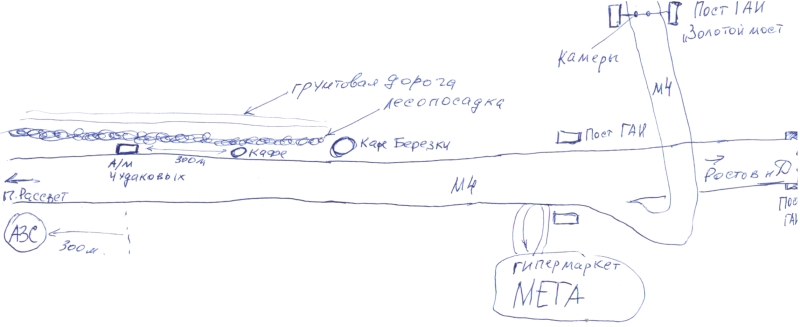 Пост ГАИ
"Золотой мост
Камеры
М4
грунтовая дорога
лесопосадка
Пост ГАИ
Кафе Березки
Кафе
300м
А/м
Чудаковых
М4
Ростов н Д.
п. Рассвет
АЗС
300м.
Пос
ГАИ
гипермаркет
МЕГА